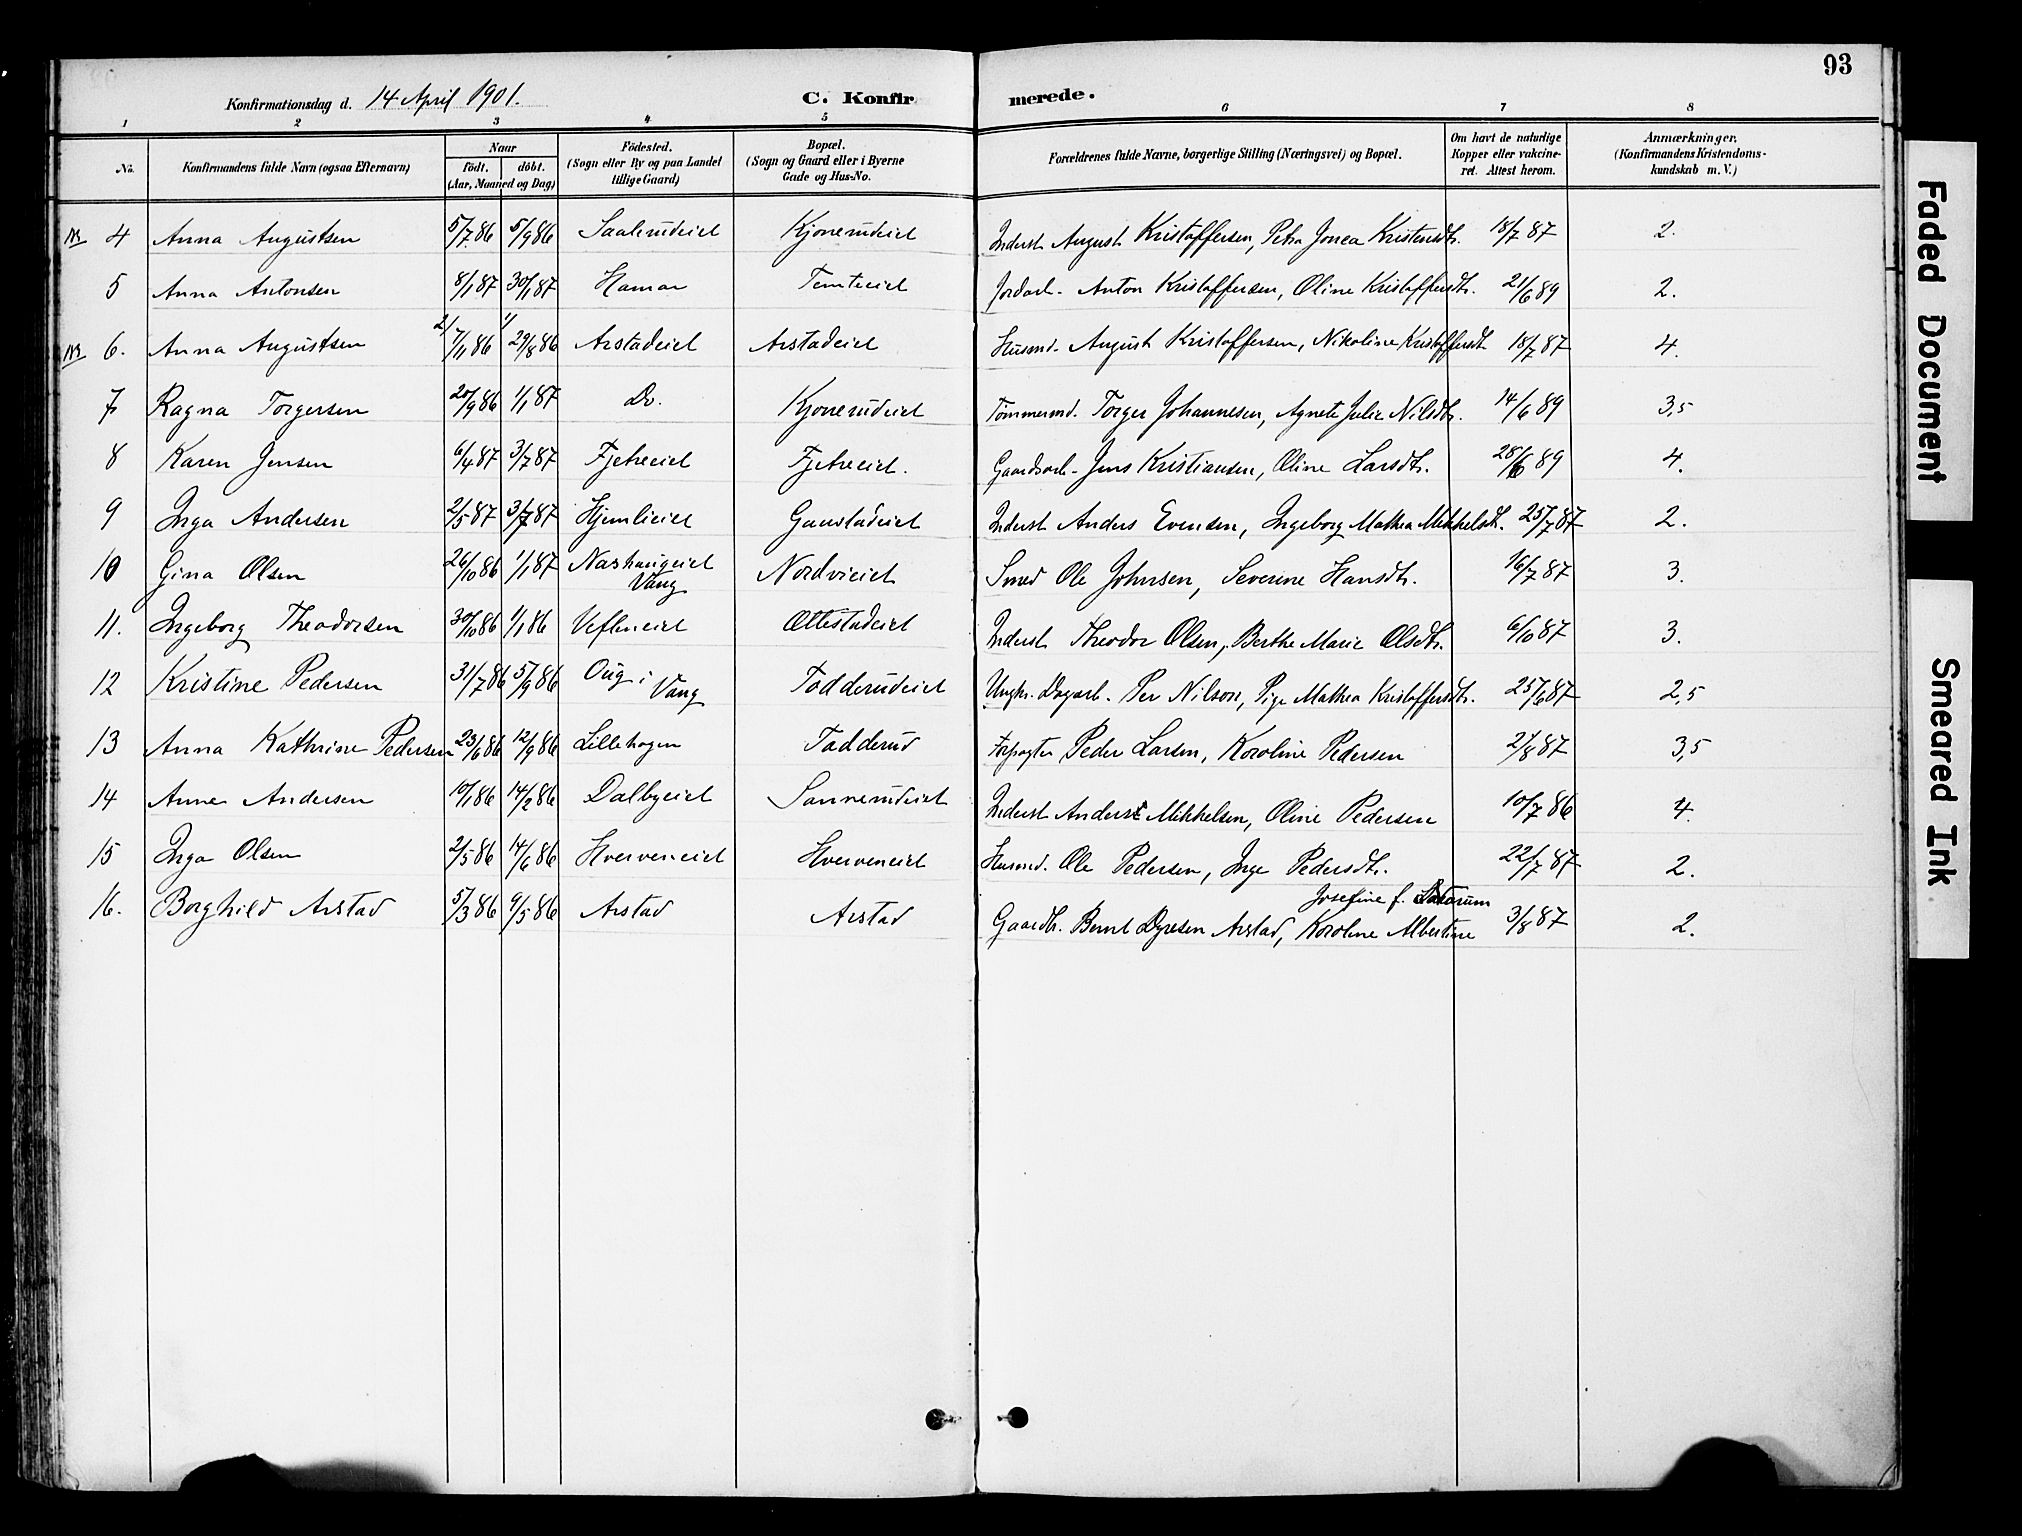 93
Konfirmationsdag d. 14 April 1901. C. Konfirmerede.
1 2 3 4 5 6 7 8
No. Konfirmandens fulde Navn (ogsaa Efternavn) Naar födt. döbt. (Aar, Maaned og Dag) Födested. (Sogn eller By og paa Landet tillige Gaard) Bopæl. (Sogn og Gaard eller i Byerne Gade og Hus-No. Forældrenes fulde Navne, borgerlige Stilling (Næringsvei) og Bopæl. Om havt de naturlige Kopper eller vakcineret. Attest herom. Anmærkninger. (Konfirmandens Kristendomskundskab m. V.)
4 Anna Augustsen 5/7 86 5/9 86 Saalerudeiet Kjonerudeiet Inderst August Kristoffersen, Petra Jonea Kristensdtr. 18/7 87 2.
5 Anna Antonsen 8/1 87 30/1 87 Hamar Tomteeiet Jordarb. Anton Kristoffersen, Oline Kristoffersdtr. 21/6 89 2.
6. Anna Augustsen 7/11 86 29/8 86 Arstadeiet Arstadeiet Husmd. August Kristoffersen, Nikoline Kristoffersdt 18/7 87 4.
7 Ragna Torgersen 20/9 86 1/1 87 Do. Kjonerudeiet Tømmermd. Torger Johannesen, Agnete Julie Nilsdtr. 14/6 89 3,5
8 Karen Jensen 6/4 87 3/7 87 Fjetreeiet Fjetreeiet. Gaardsarb. Jens Kristiansen, Oline Larsdtr. 28/6 89 4.
9 Inga Andersen 2/5 87 3/7 87 Hjemlieiet Gaustadeiet Inderst Anders Evensen, Ingeborg Mathea Mikkelsdt. 25/7 87 2.
10 Gina Olsen 26/10 86 1/1 87 Nashaugeiet Vang Nordvieiet Smed Ole Johnsen, Severine Hansdtr. 16/7 87 3.
11. Ingeborg Theodorsen 30/10 86 1/1 86 Vefleneiet Ottestadeiet Inderst Theodor Olsen, Berthe Marie Olsdtr. 6/10 87 3.
12 Kristine Pedersen 31/7 86 5/9 86 Oug i Vang Todderudeiet Ungkr. Dagarb. Per Nilson, Pige Mathea Kristoffersdtr. 25/6 87 2,5
13 Anna Kathrine Pedersen 23/6 86 12/9 86 Lillehagen Tadderud Forpagter Peder Larsen, Karoline Pedersen 2/8 87 3,5
14 Anne Andersen 10/1 86 14/2 86 Dalbyeiet Sannerudeiet Inderst Anders Mikkelsen, Oline Pedersen 10/7 86 4.
15 Inga Olsen 2/5 86 14/6 86 Hverveneiet Hverveneiet Husmd. Ole Pedersen, Inge Pedersdtr. 22/7 87 2.
16. Borghild Arstad 5/3 86 9/5 86 Arstad Arstad Gaardbr. Bernt Dyresen Arstad, Karoline Albertine Josefine f. 3/8 87 2.
Faded Document
Smeared Ink